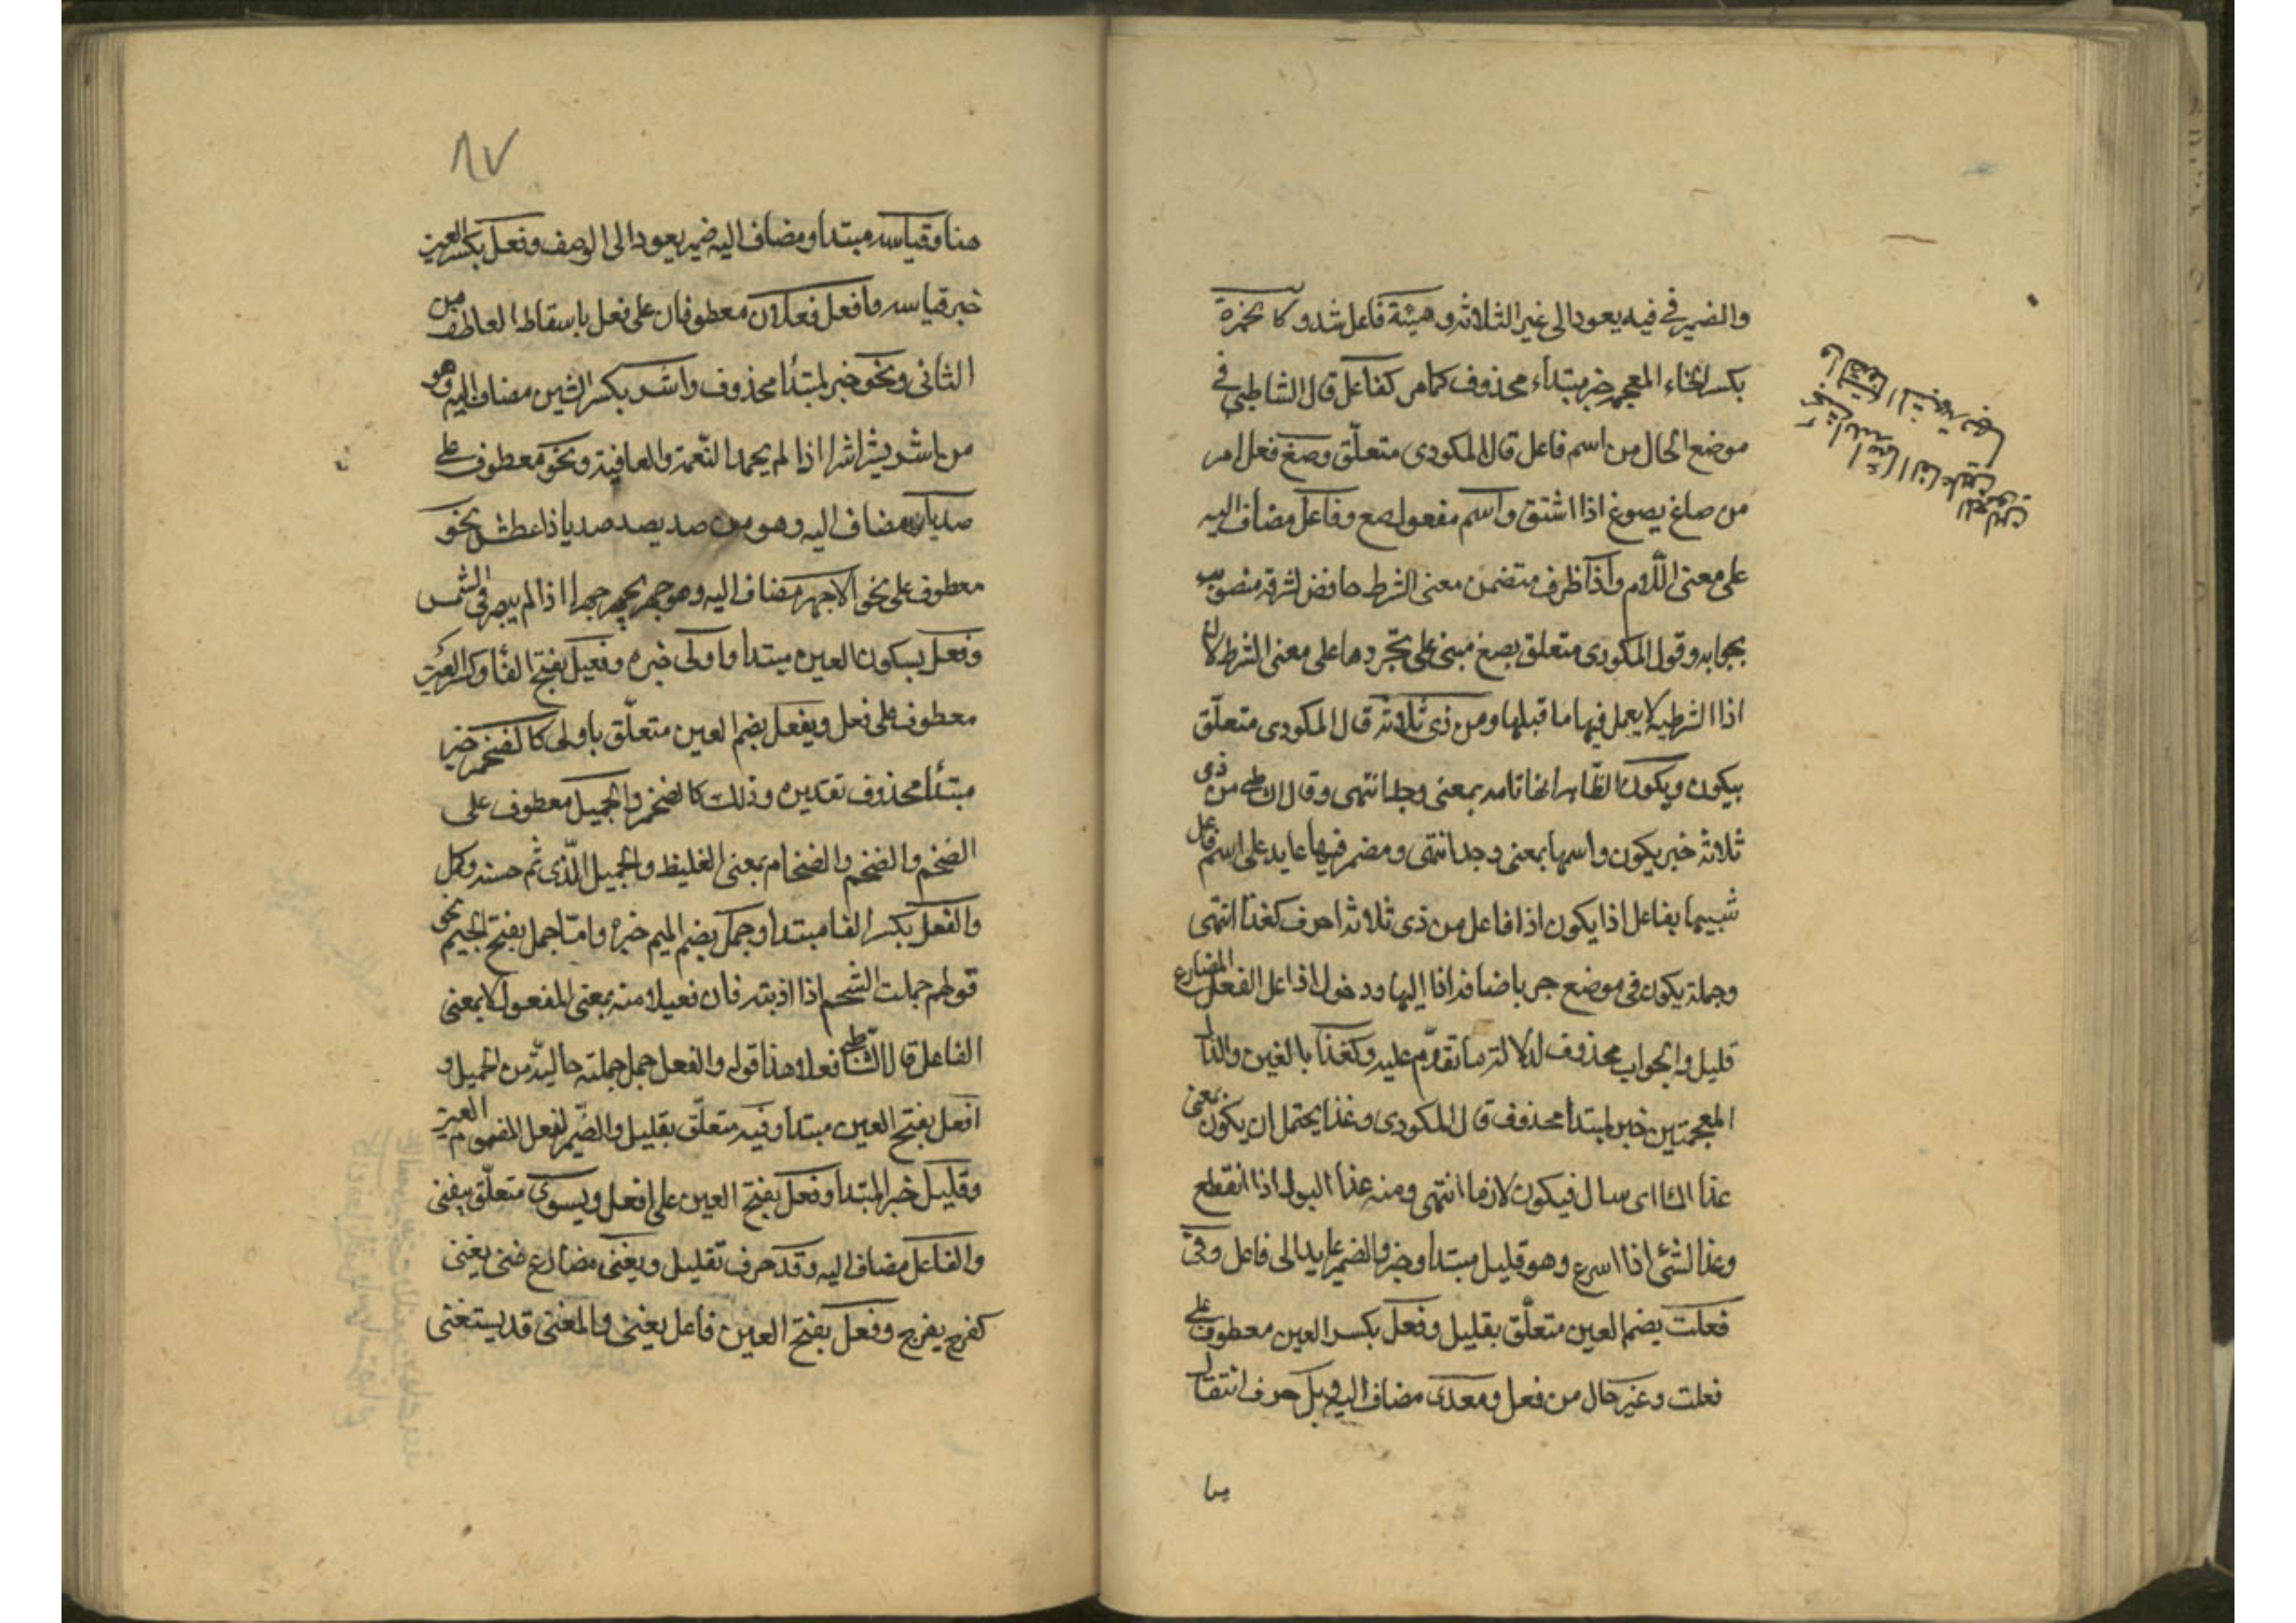 والضمير في فيه يعود الى غير الثلاثه وهيئة فاعل شذوا كالخمرة
بكسر الخاء المعجمه خبر مبتداء محذوف كما مر كفاعل قال الشاطبي في
موضع الحال من اسم فاعل قال المكودى متعلّق وصغ فعل امر
من صاغ يصوغ اذا اشتق واسم مفعول صغ وفاعل مضاف اليه
على معنى اللّام واذا ظرف متضمن معنى الشرط خافض لشرطه منصوب
بجوابه وقول المكودى متعلق بصغ مبنى على تجّردها على معنى الشرط لان
اذا الشرطيه لا يعمل فيها ما قبلها ومن ذى ثلاثه قال المكودى متعلّق
بيكون ويكون الظّاهر انها تامه بمعنى وجد انتهى وقال الشاطبى من ذى
ثلاثه خبر يكون واسمها بمعنى وجد انتهى ومضمر فيها عايد على اسم فاعل
شبيها بفاعل اذا يكون اذا فاعل من ذى ثلاثه احرف كغذا انتهى
وجملة يكون في موضع جر باضافة اذا اليها ودخول اذا على الفعل المضارع
قليل والجواب محذوف لدلالة ما تقدّم عليه وكغذا بالغين والذال
المعجمتين خبر لمبتدأ محذوف قال المكودى وغذا يحتمل ان يكون بمعنى
غذا الماء اى سال فيكون لازما انتهى ومنه غذا البول اذا انقطع
وغذا الشئ اذا اسرع وهو قليل مبتدا وخبر والضمير عايد الى فاعل وفي
فعلت بضم العين متعلّق بقليل وفعل بكسر العين معطوف على
فعلت وغير حال من فعل ومعدى مضاف اليه وبل حرف انتقال
٨٧
هنا وقياسه مبتدا ومضاف اليه ضمير يعود الى الوصف وفعل بكسر العين
خبر قياسه وافعل فعلان معطوفان على فعل باسقاط العاطف من
الثانى ونحو خبر لمبتدأ محذوف واشر بكسر الشين مضاف اليه وهو
من اشر يشر اشرا اذا لم يحمد النّعمة والعافية ونحو معطوف على
صديان مضاف اليه وهو من صد يصد صديا اذا عطش ونحو
معطوف على نحو الاجهر مضاف اليه وهو جهر يجهر جهرا اذا لم يبصر في الشمس
وفعل بسكون العين مبتدا واولى خبره وفعيل بفتح الفا وكسر العين
معطوف على فعل وبفعل بضم العين متعلّق باولى كالضخم خبر
مبتدأ محذوف تقديره وذلك كالضخم والجميل معطوف على
الضخم والضخم والضخام بمعنى الغليظ والجميل الّذى تم حسنه وكمل
والفعل بكسر الفا مبتدا وجمل بضم الميم خبره وامّا جمل بفتح الجيم نحو
قولهم جملت الشحم اذا اذبته فان فعيلا منه بمعنى المفعول لا بمعنى
الفاعل قال الشاطبى فعلا وهذا قوله والفعل جمل جملته حاليّة من الجميل و
افعل بفتح العين مبتدا وفيه متعلّق بقليل والضّمير لفعل المضموم العين
وقليل خبر المبتدا وفعل بفتح العين على افعل وبسوى متعلّق بيغنى
والفاعل مضاف اليه وقد حرف تقليل ويغنى مضارع غنى يغنى
كفرح يفرح وفعل بفتح العين فاعل يغنى والمعنى قد يستغنى